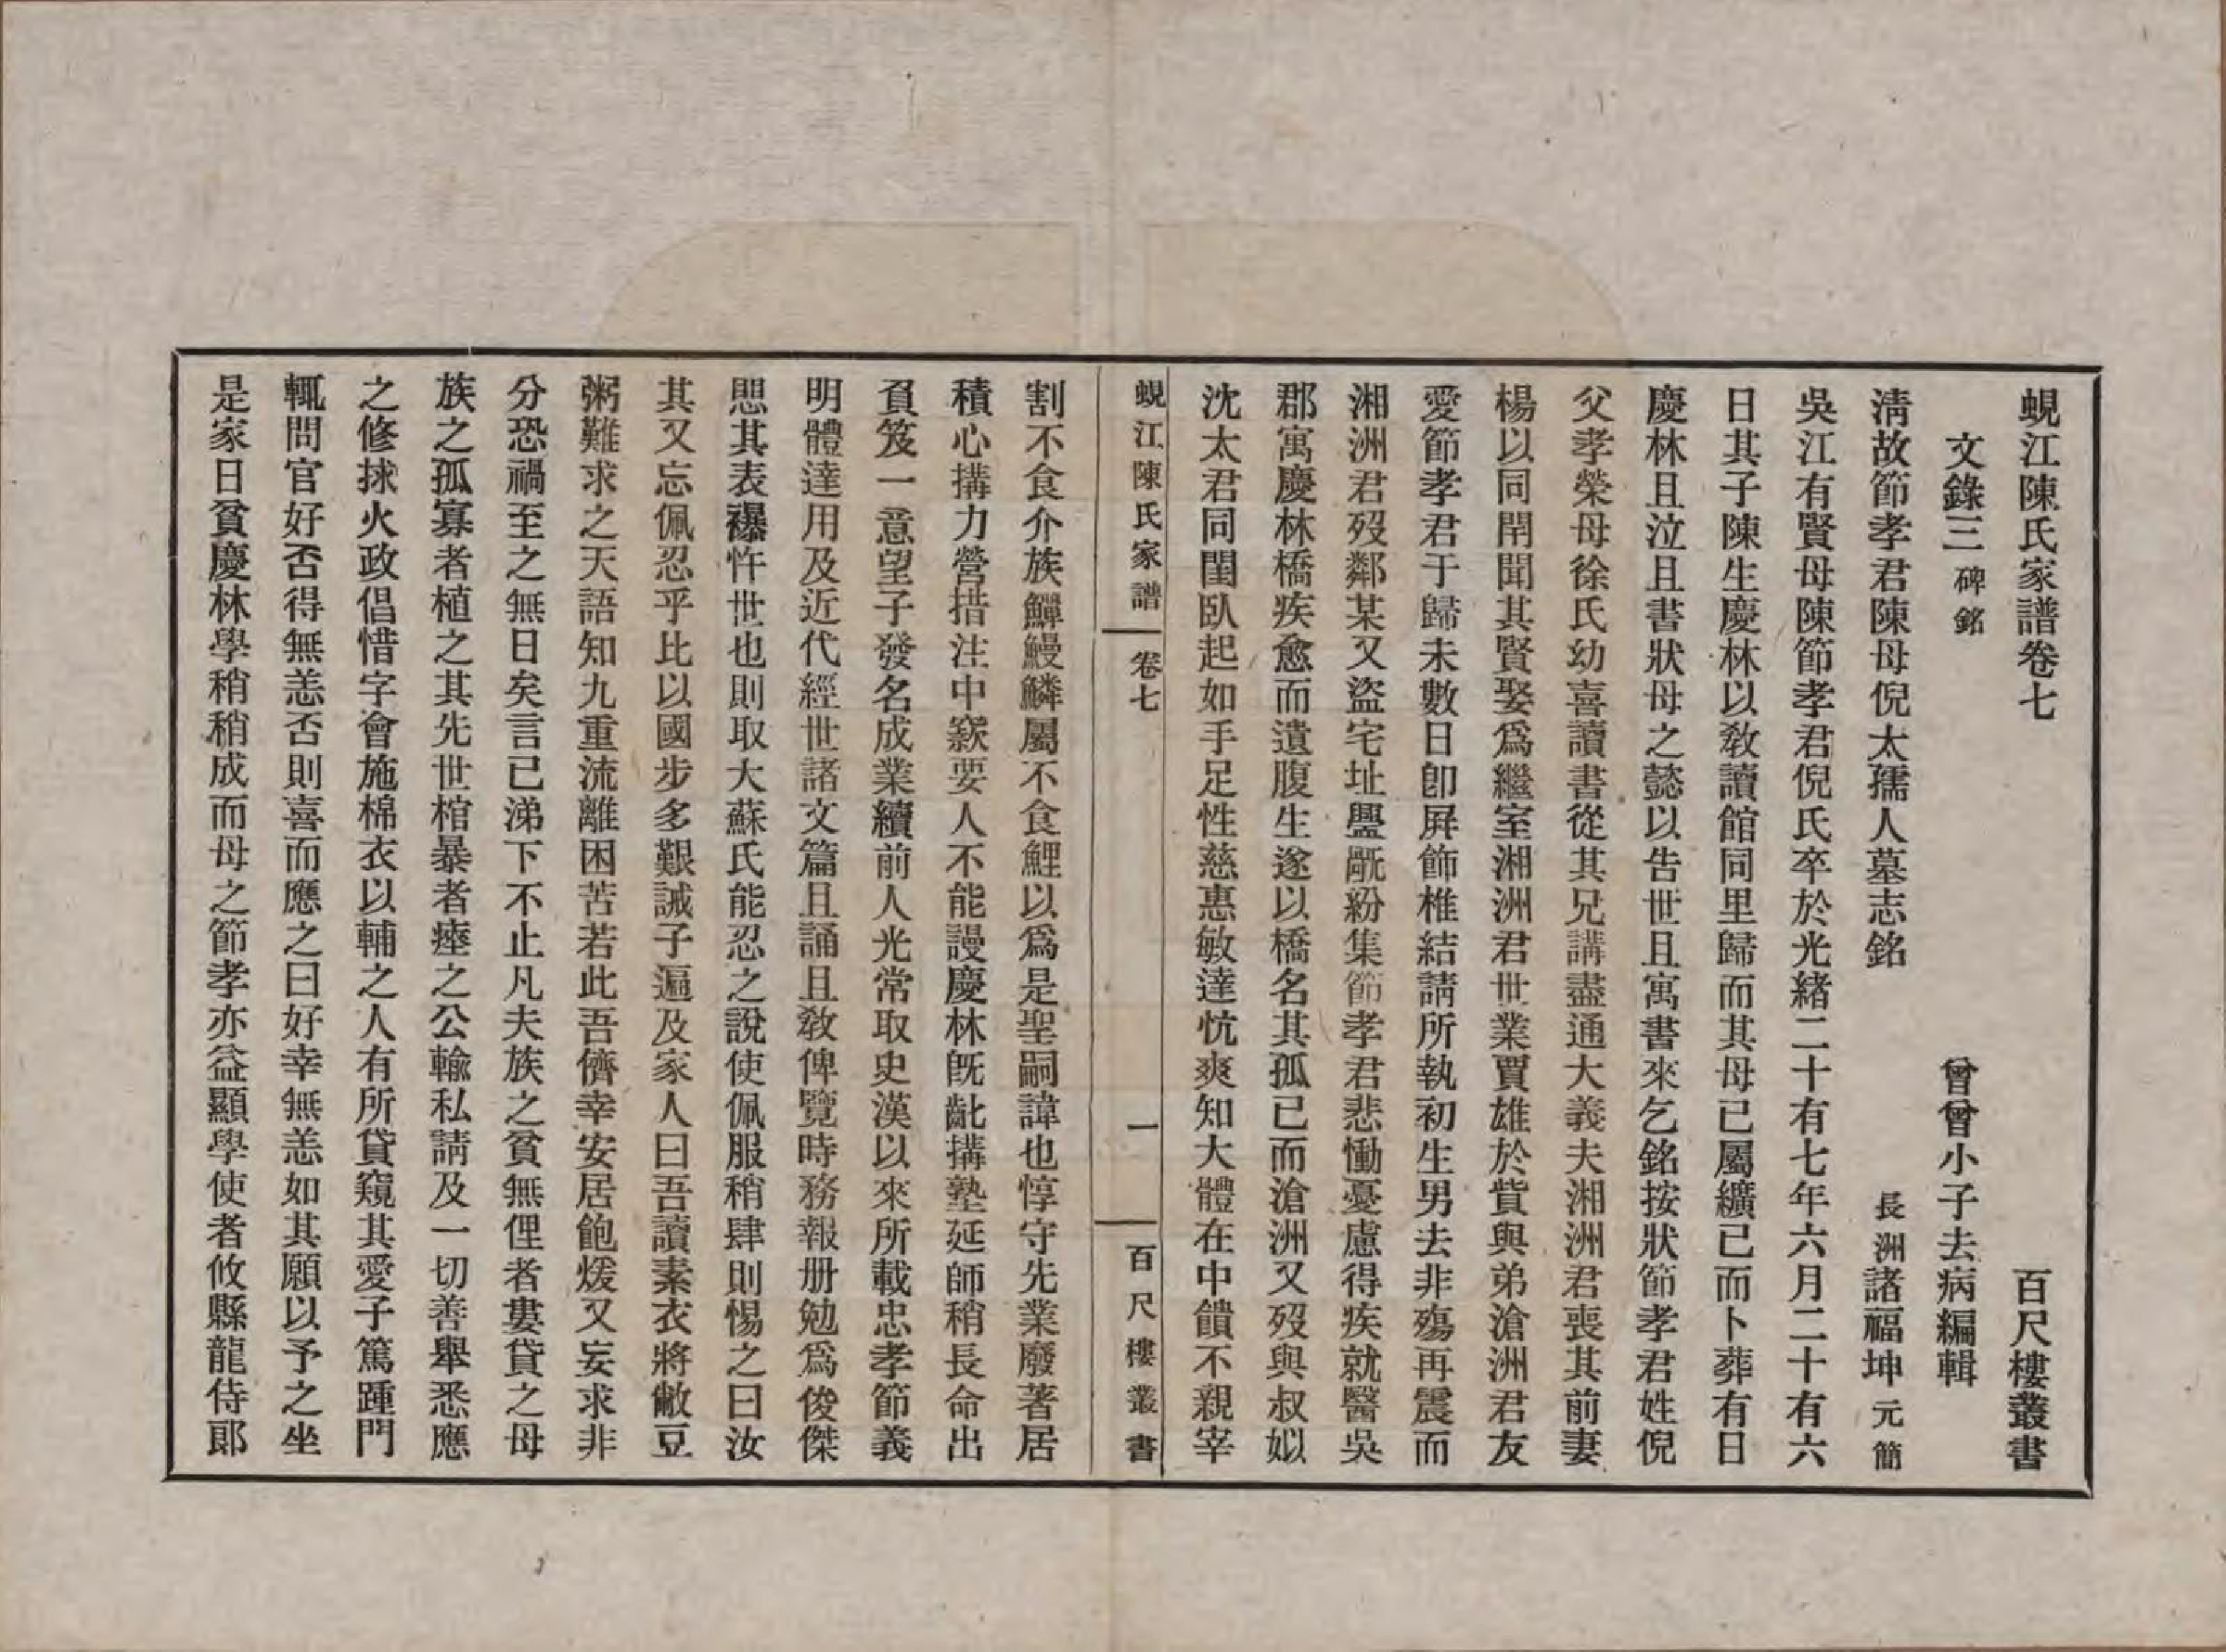 蜆江陳氏家譜卷七 百尺樓叢書
文錄三 碑銘 曾曾小子去病編輯
清故節孝君陳母倪太孺人墓志銘 長洲諸福坤元簡
吳江有賢母陳節孝君倪氏卒於光緒二十有七年六月二十有六
日其子陳生慶林以敎讀館同里歸而其母已屬纊已而卜葬有日
慶林且泣且書狀母之懿以告世且寓書來乞銘按狀節孝君姓倪
父孝榮母徐氏幼喜讀書從其兄講盡通大義夫湘洲君喪其前妻
楊以同閈聞其賢娶爲繼室湘洲君世業賈雄於貲與弟滄洲君友
愛節孝君于歸未數日卽屛飾椎結請所執初生男去非殤再震而
湘洲君歿鄰某又盜宅址釁㽅紛集節孝君悲慟憂慮得疾就醫吳
郡寓慶林橋疾愈而遺腹生遂以橋名其孤已而滄洲又歿與叔姒
沈太君同閨臥起如手足性慈惠敏達忼爽知大體在中饋不親宰
蜆江陳氏家譜 卷七 一 百尺樓叢書
割不食介族鱓鰻鱗屬不食鯉以爲是聖嗣諱也惇守先業廢著居
積心搆力營措注中窽要人不能謾慶林旣齔搆塾延師稍長命出
負笈一意望子發名成業續前人光常取史漢以來所載忠孝節義
明體達用及近代經世諸文篇且誦且敎俾覽時務報册勉爲俊傑
思其表襮忤世也則取大蘇氏能忍之說使佩服稍肆則惕之曰汝
其又忘佩忍乎比以國步多艱誡子逼及家人曰吾讀素衣將敝豆
粥難求之天語知九重流離困苦若此吾儕幸安居飽煖又妄求非
分恐禍至之無日矣言已涕下不止凡夫族之貧無俚者婁貸之母
族之孤寡者植之其先世棺暴者瘞之公輸私請及一切善舉悉應
之修捄火政倡惜字會施棉衣以輔之人有所貸窺其愛子篤踵門
輒問官好否得無恙否則喜而應之曰好幸無恙如其願以予之坐
是家日貧慶林學稍稍成而母之節孝亦益顯學使者攸縣龍侍郞